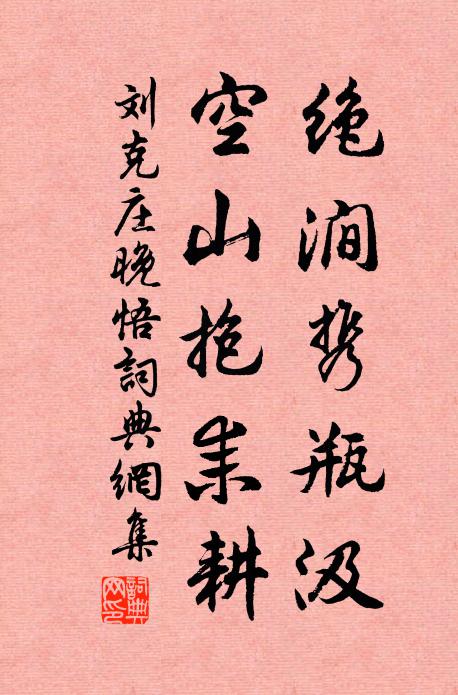 绝涧携瓶汲
空山抱耒耕
刘克庄晚悟詞典網集